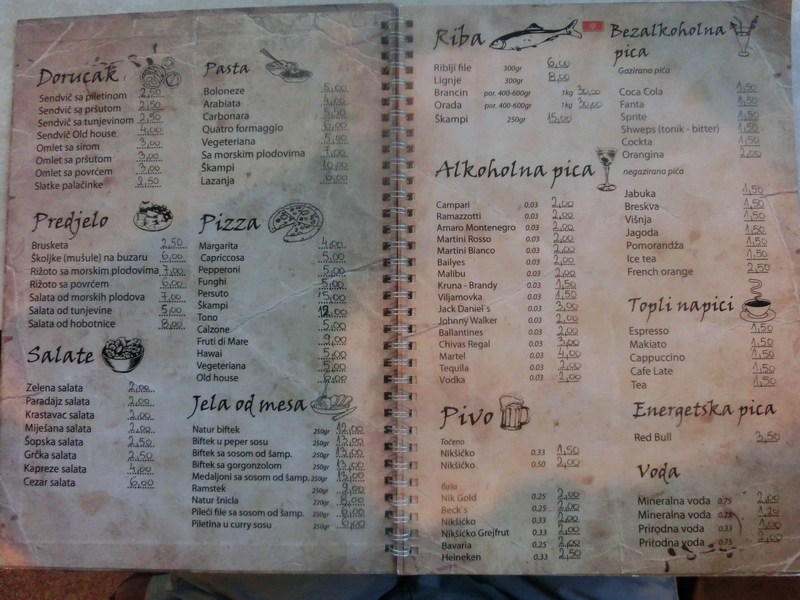 Doručak
Sendvič sa piletinom 2,50
Sendvič sa pršutom 2,50
Sendvič sa tunjevinom 2,50
Sendvič Old house 4,00
Omlet sa sirom 3,00
Omlet sa pršutom 3,00
Omlet sa povrćem 3,00
Slatke palačinke 2,50
Predjelo
Brusketa 2,50
Školjke (mušule) na buzaru 6,00
Rižoto sa morskim plodovima 7,00
Rižoto sa povrćem 6,00
Salata od morskih plodova 7,00
Salata od tunjevine 5,00
Salata od hobotnice 8,00
Salate
Zelena salata 2,00
Paradajz salata 2,00
Krastavac salata 2,00
Miješana salata 2,00
Šopska salata 2,50
Grčka salata 2,50
Kapreze salata 4,00
Cezar salata 6,00
Pasta
Boloneze 5,00
Arabiata 4,00
Carbonara 5,50
Quatro formaggio 6,00
Vegeteriana 5,00
Sa morskim plodovima 7,00
Škampi 10,00
Lazanja 6,00
Pizza
Margarita 4,00
Capriccosa 5,00
Pepperoni 5,00
Funghi 5,00
Persuto 5,00
Škampi 12,00
Tono
Calzone 5,00
Fruti di Mare 9,00
Hawai 5,00
Vegeteriana 5,00
Old house 6,00
Jela od mesa
Natur biftek 250gr 12,00
Biftek u peper sosu 250gr 13,00
Biftek sa sosom od šamp. 250gr 13,00
Biftek sa gorgonzolom 250gr 13,00
Medaljoni sa sosom od šamp. 250gr 13,00
Ramstek 250gr 9,00
Natur šnicla 220gr 8,00
Pileći file sa sosom od šamp. 250gr 6,00
Piletina u curry sosu 250gr 6,00
Riba
Riblji file 300gr 6,00
Lignje 300gr 8,00
Brancin por. 400-600gr 1kg 30,00
Orada por. 400-600gr 1kg 30,00
Škampi 250gr 15,00
Alkoholna pica
Campari 0.03 2,00
Ramazzotti 0.03 2,00
Amaro Montenegro 0.03 2,00
Martini Rosso 0.03 2,00
Martini Bianco 0.03 2,00
Bailyes 0.03 2,00
Malibu 0.03 2,00
Kruna - Brandy 0.03 1,50
Viljamovka 0.03 1,50
Jack Daniel´s 0.03 3,00
Johnny Walker 0.03 2,00
Ballantines 0.03 2,00
Chivas Regal 0.03 3,00
Martel 0.03 4,00
Tequila 0.03 2,00
Vodka 0.03 2,00
Pivo
Točeno
Nikšićko 0.33 1,50
Nikšićko 0.50 2,00
flaša
Nik Gold 0.25 2,00
Beck´s 0.25 2,00
Nikšićko 0.33 2,00
Nikšićko Grejfrut 0.33 2,00
Bavaria 0.25 2,00
Heineken 0.33 2,50
Bezalkoholna
pica
Gazirana pića
Coca Cola 1,50
Fanta 1,50
Sprite 1,50
Shweps (tonik - bitter) 1,50
Cockta 1,50
Orangina 2,00
negazirana pića
Jabuka 1,50
Breskva 1,50
Višnja 1,50
Jagoda 1,50
Pomorandža 1,50
Ice tea 1,50
French orange 2,50
Topli napici
Espresso 1,50
Makiato 1,50
Cappuccino 1,50
Cafe Late 1,50
Tea 1,50
Energetska pica
Red Bull 3,50
Voda
Mineralna voda 0.75 2,00
Mineralna voda 0.25 1,20
Prirodna voda 0.33 1,00
Prirodna voda 0.75 2,00